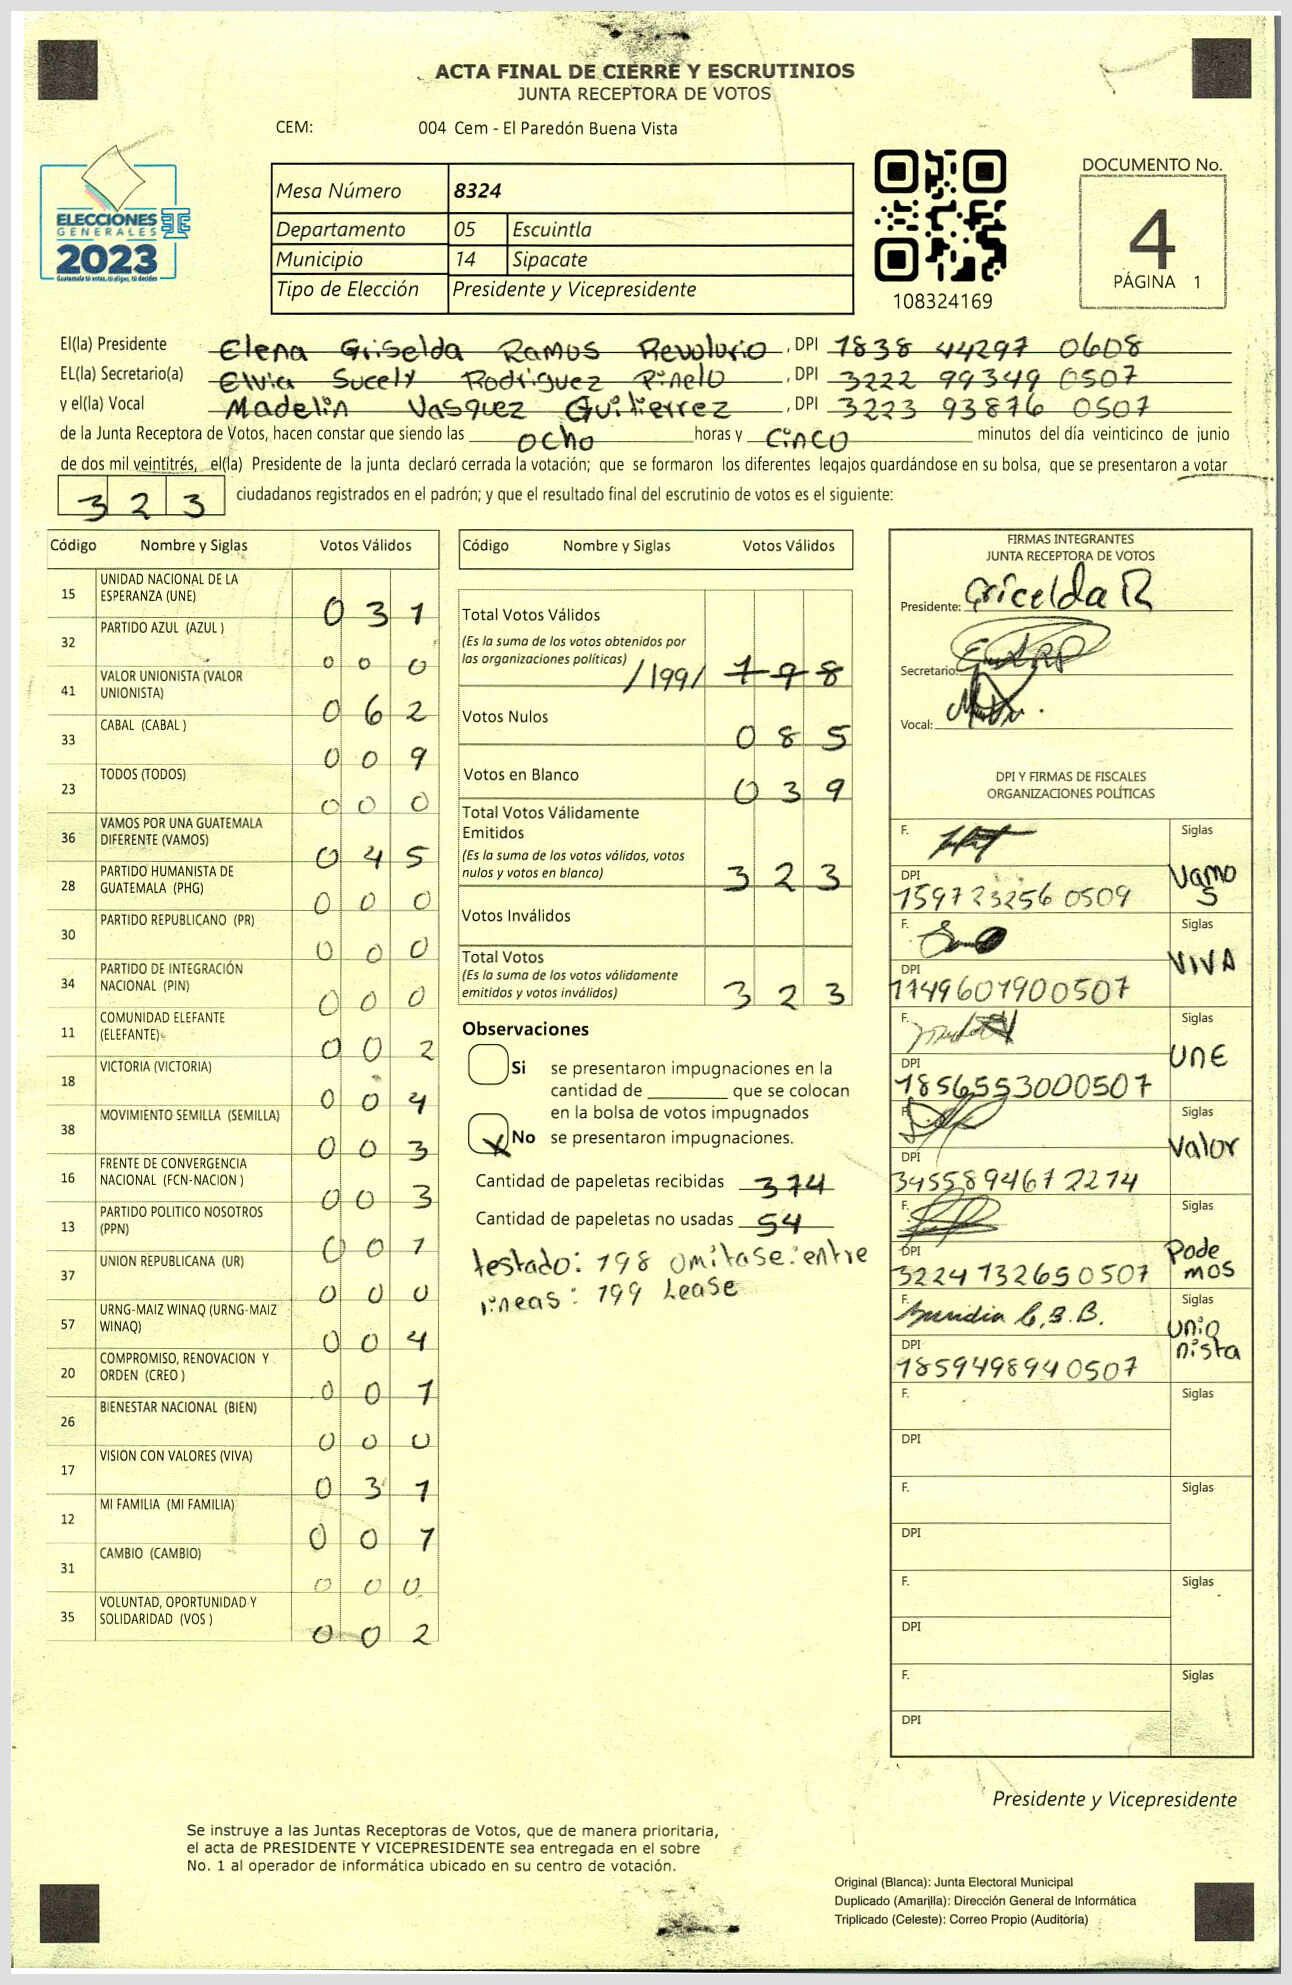 ACTA FINAL DE CIERRE Y ESCRUTINIOS
JUNTA RECEPTORA DE VOTOS
CEM: 004 Cem - El Paredón Buena Vista
ELECCIONES
GENERALES
2023
Guatemala tú votas, tú eliges, tú decides
Mesa Número 8324
Departamento 05 Escuintla
Municipio 14 Sipacate
Tipo de Elección Presidente y Vicepresidente
108324169
DOCUMENTO No.
4
PÁGINA 1
El(la) Presidente Elena Griselda Ramos Revolorio, DPI 1838 44297 0608
EL(la) Secretario(a) Elvia Sucely Rodriguez Pinelo, DPI 3222 99349 0507
y el(la) Vocal Madelin Vasquez Gutierrez, DPI 3223 93876 0507
de la Junta Receptora de Votos, hacen constar que siendo las ocho horas y cinco minutos del día veinticinco de junio
de dos mil veintitrés, el(la) Presidente de la junta declaró cerrada la votación; que se formaron los diferentes legajos guardándose en su bolsa, que se presentaron a votar
323 ciudadanos registrados en el padrón; y que el resultado final del escrutinio de votos es el siguiente:
Código Nombre y Siglas Votos Válidos
15 UNIDAD NACIONAL DE LA ESPERANZA (UNE) 031
32 PARTIDO AZUL (AZUL ) 000
41 VALOR UNIONISTA (VALOR UNIONISTA) 062
33 CABAL (CABAL ) 009
23 TODOS (TODOS) 000
36 VAMOS POR UNA GUATEMALA DIFERENTE (VAMOS) 045
28 PARTIDO HUMANISTA DE GUATEMALA (PHG) 000
30 PARTIDO REPUBLICANO (PR) 000
34 PARTIDO DE INTEGRACIÓN NACIONAL (PIN) 000
11 COMUNIDAD ELEFANTE (ELEFANTE) 002
18 VICTORIA (VICTORIA) 004
38 MOVIMIENTO SEMILLA (SEMILLA) 003
16 FRENTE DE CONVERGENCIA NACIONAL (FCN-NACION ) 003
13 PARTIDO POLITICO NOSOTROS (PPN) 001
37 UNION REPUBLICANA (UR) 000
57 URNG-MAIZ WINAQ (URNG-MAIZ WINAQ) 004
20 COMPROMISO, RENOVACION Y ORDEN (CREO ) 001
26 BIENESTAR NACIONAL (BIEN) 000
17 VISION CON VALORES (VIVA) 031
12 MI FAMILIA (MI FAMILIA) 001
31 CAMBIO (CAMBIO) 000
35 VOLUNTAD, OPORTUNIDAD Y SOLIDARIDAD (VOS ) 002
Código Nombre y Siglas Votos Válidos
Total Votos Válidos
(Es la suma de los votos obtenidos por
las organizaciones políticas) /199/ 198
Votos Nulos 085
Votos en Blanco 039
Total Votos Válidamente
Emitidos
(Es la suma de los votos válidos, votos
nulos y votos en blanco) 323
Votos Inválidos
Total Votos
(Es la suma de los votos válidamente
emitidos y votos inválidos) 323
Observaciones
Si se presentaron impugnaciones en la
cantidad de ________ que se colocan
en la bolsa de votos impugnados
X No se presentaron impugnaciones.
Cantidad de papeletas recibidas 374
Cantidad de papeletas no usadas 54
testado: 198 omitase: entre
lineas: 199 Lease
FIRMAS INTEGRANTES
JUNTA RECEPTORA DE VOTOS
Presidente: Gricelda R
Secretario:
Vocal:
DPI Y FIRMAS DE FISCALES
ORGANIZACIONES POLÍTICAS
F. Siglas
DPI Vamos
1597 23256 0509
F. Siglas
VIVA
DPI
1749601900507
F. Siglas
UNE
DPI
1856553000507
F. Siglas
Valor
DPI
3455894672214
F. Siglas
DPI Podemos
3224132650507
F. Siglas
Unionista
DPI
1859498940507
F. Siglas
DPI
F. Siglas
DPI
F. Siglas
DPI
F. Siglas
DPI
Presidente y Vicepresidente
Se instruye a las Juntas Receptoras de Votos, que de manera prioritaria,
el acta de PRESIDENTE Y VICEPRESIDENTE sea entregada en el sobre
No. 1 al operador de informática ubicado en su centro de votación.
Original (Blanca): Junta Electoral Municipal
Duplicado (Amarilla): Dirección General de Informática
Triplicado (Celeste): Correo Propio (Auditoría)